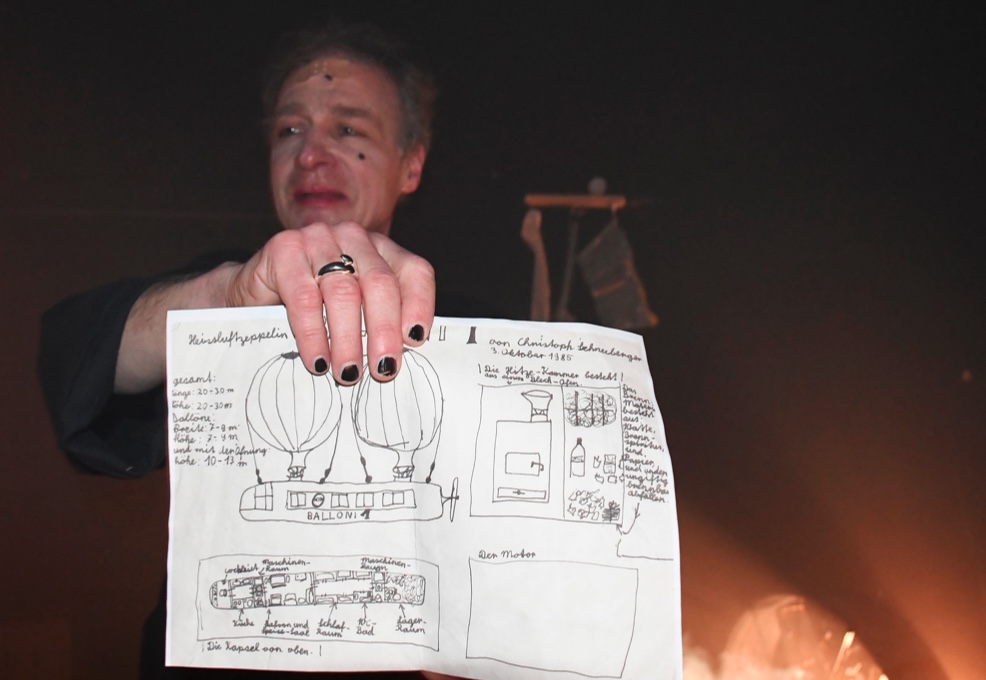 Heissluftzeppelin
von Christoph Schneeberger
3. Oktober 1985
gesamt:
länge: 20-30 m
höhe: 20-30m
Ballone:
Breite: 7-9 m
Höhe: 7-9 m
und mit der Öfnung:
höhe: 10-13 m
BALLONI 1
! Die Hitze-Kammer besteht !
aus einem Blech-Ofen.
Das
Brenn-
Material
besteht
aus
Watte,
Brenn-
spiritus,
und
Papier
und andern
ungiftigen
brennbaren
abfällen.
cockpit
maschinen-
Raum
maschinen-
Raum
Küche
Safon und
speise-Saal
Schlaf-
Raum
WC-
Bad
Lager-
Raum
! Die Kapsel von oben. !
Der Motor